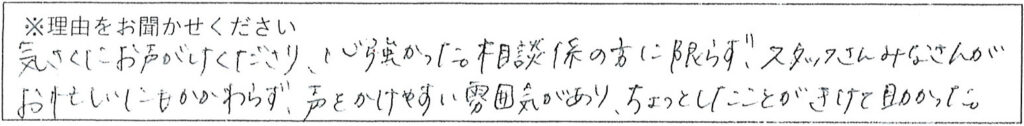 ※理由をお聞かせください
気さくにお声がけくださり、心強かった。相談係の方に限らず、スタッフさんみなさんが
お忙しいにもかかわらず、声をかけやすい雰囲気があり、ちょっとしたことがきけて助かった。